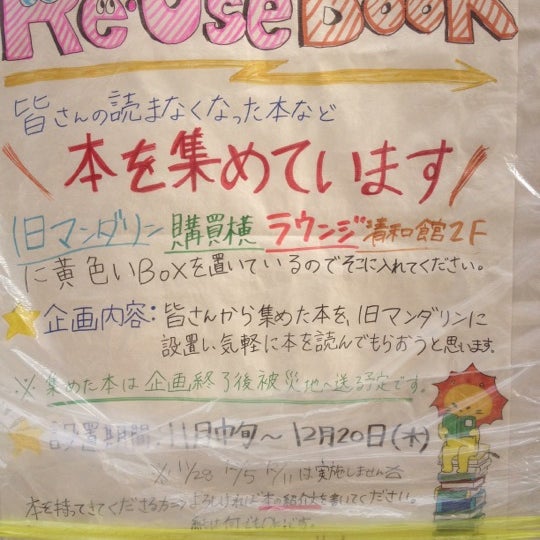 Re・Use Book
皆さんの読まなくなった本など
本を集めています
旧マンダリン 購買横 ラウンジ 清和館2F
に黄色いBoxを置いているのでそこに入れてください。
企画内容：皆さんから集めた本を、旧マンダリンに
設置し、気軽に本を読んでもらおうと思います。
※集めた本は企画終了後被災地へ送る予定です。
設置期間：11月中旬〜12月20日(木)
※11/28 12/5 12/11は実施しません
本を持ってきてくださる方に よろしければ本の紹介文を書いてください。